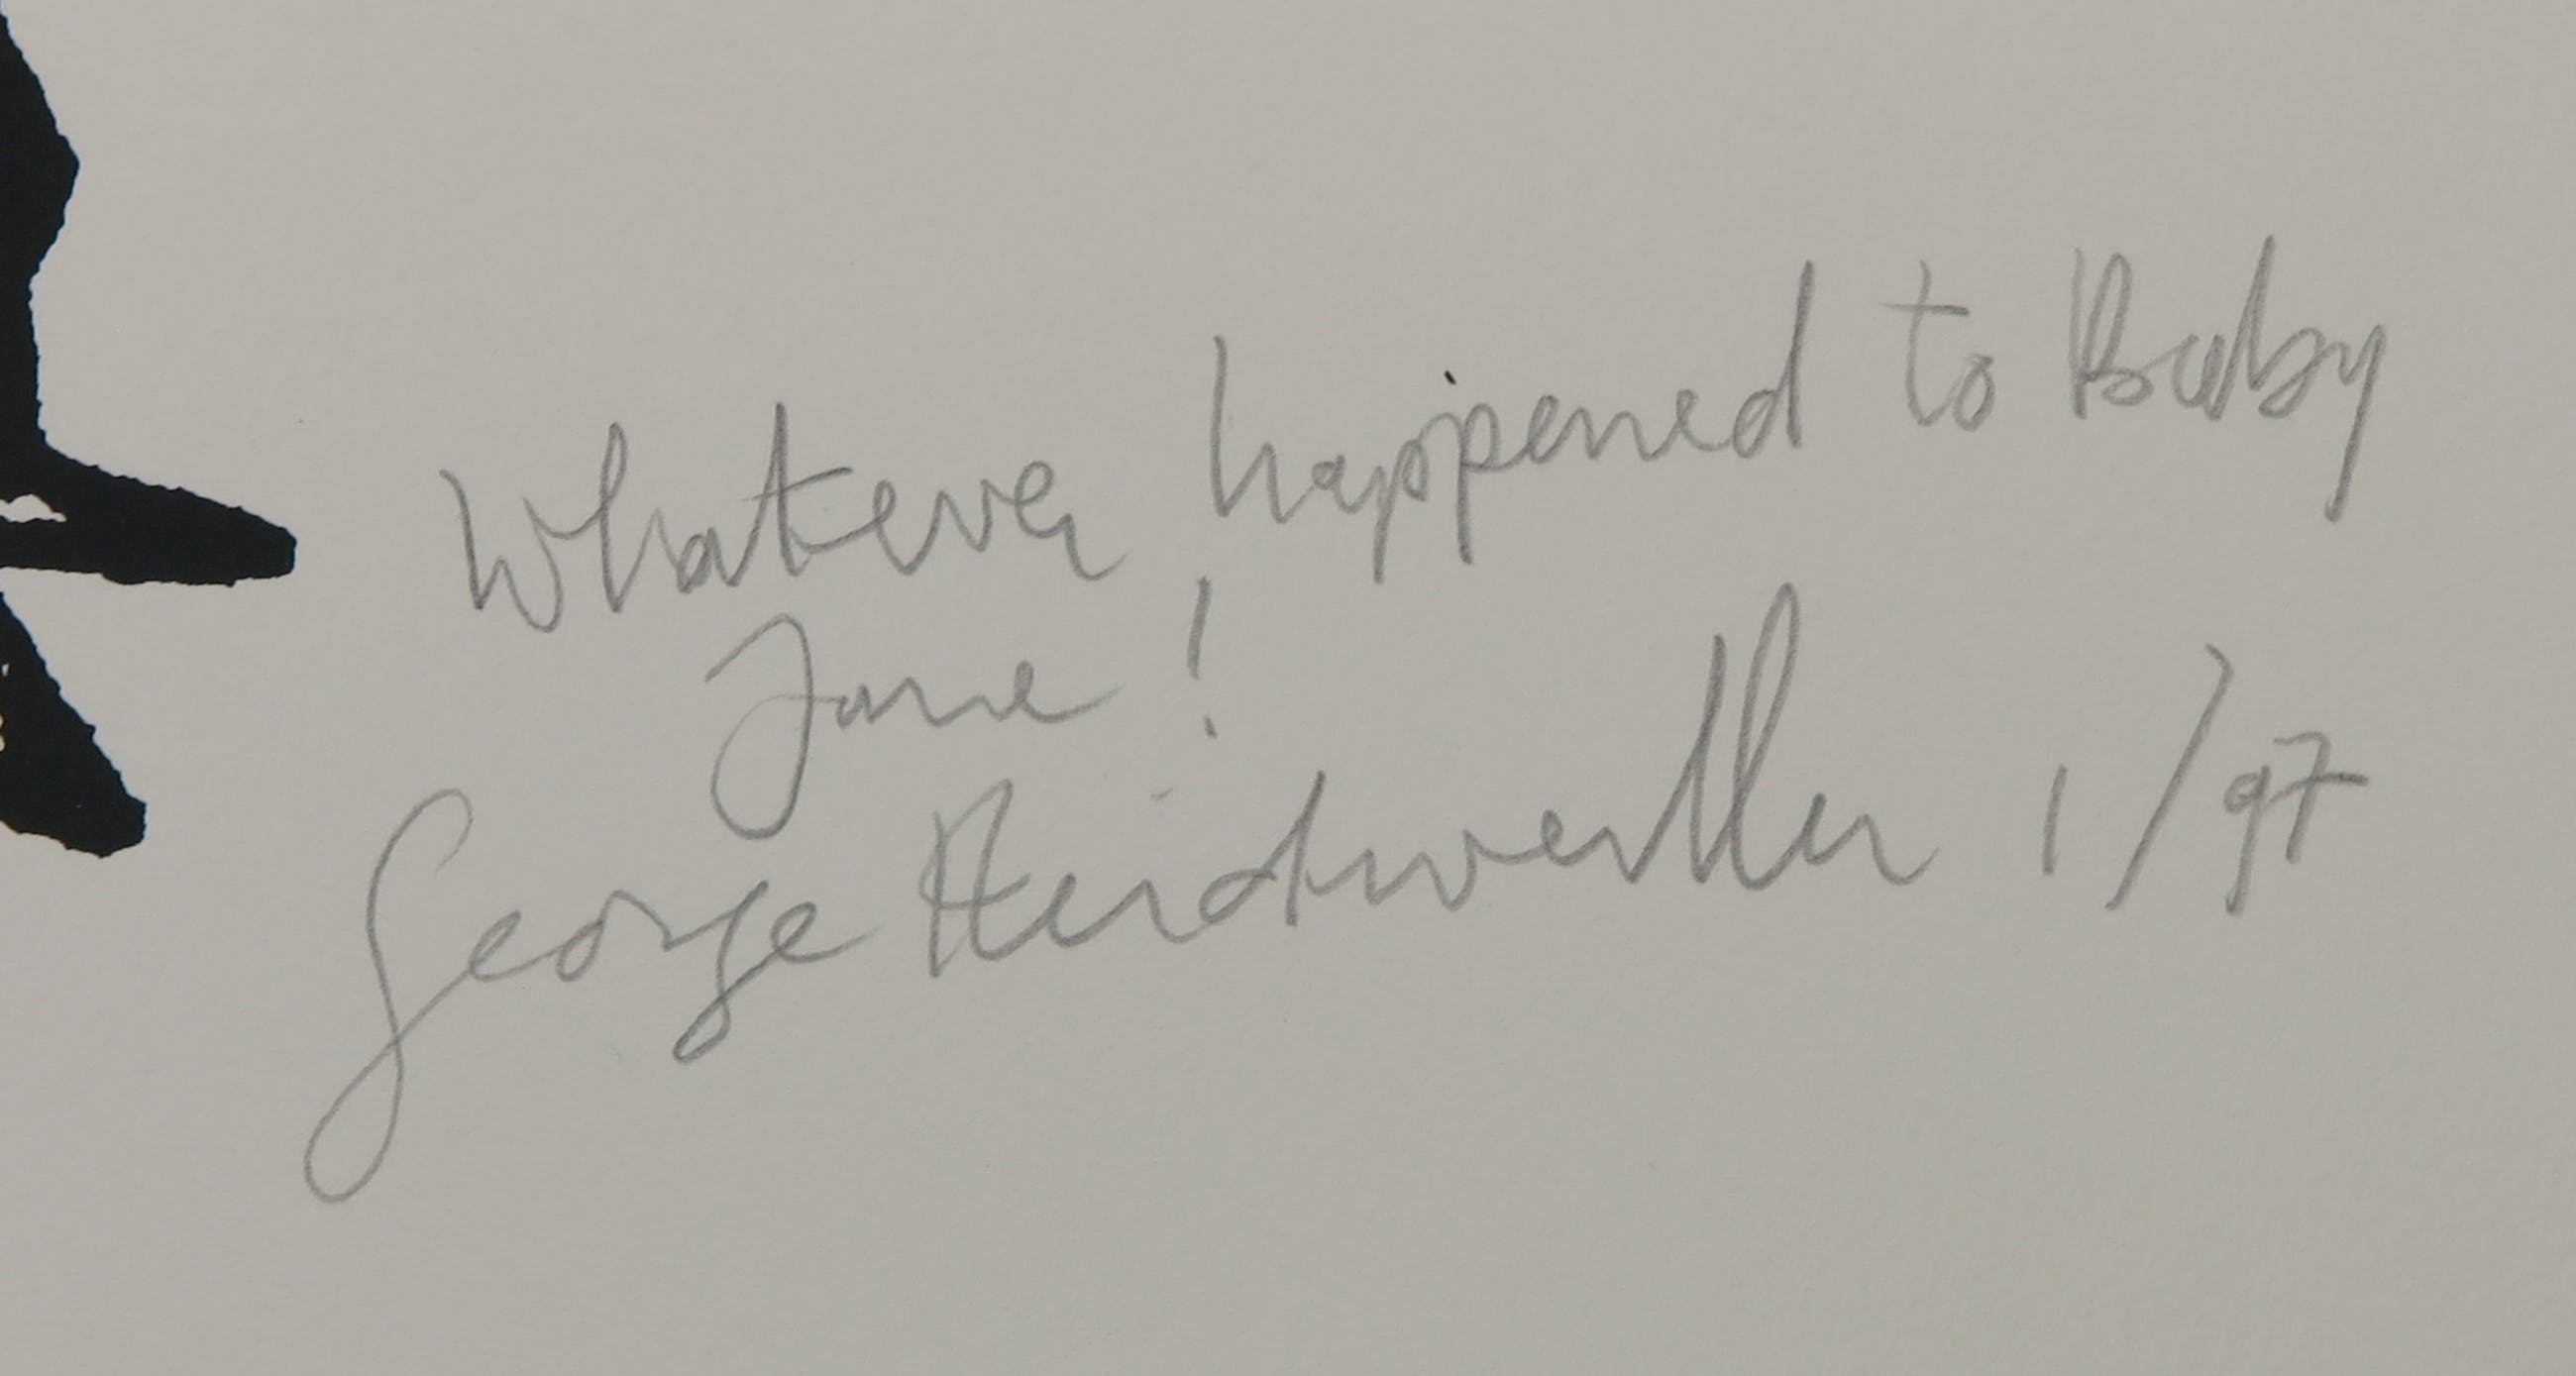 Whatever happened to Baby
Jane!
George Heidweiller 1/97